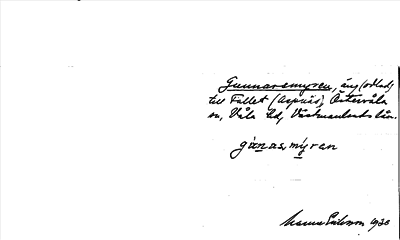 Gunnarsmyren, äng (odlad)
till Fallet (Aspnäs), Östervåla
sn, Våla hd, Västmanlands län.
gunasmyran
1930